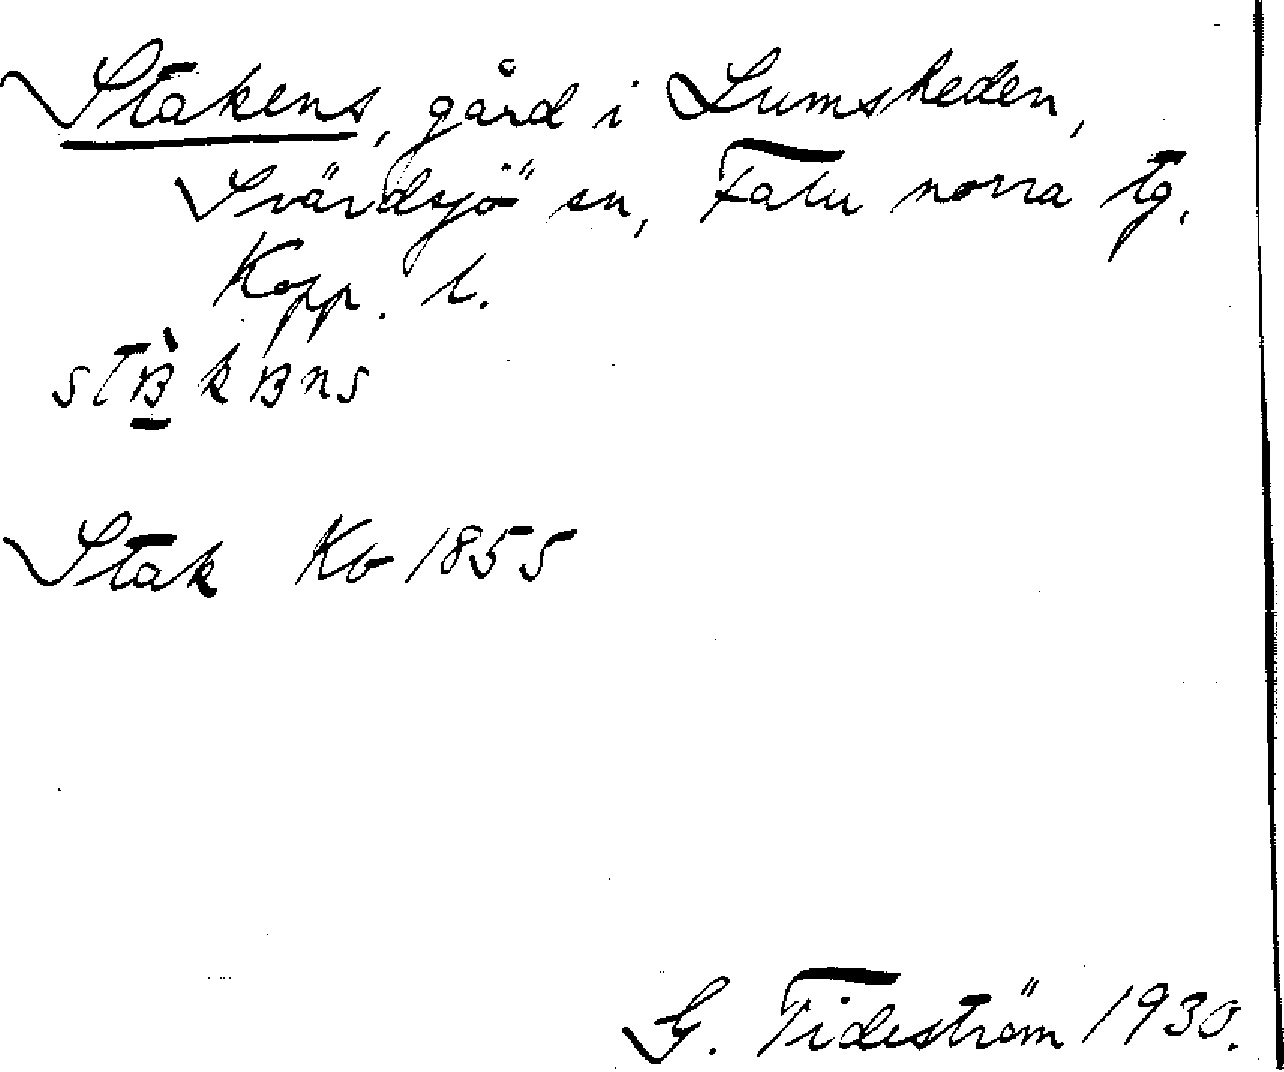 Stakens, gård i Lumsheden,
Svärdsjö sn, Falu norra tg,
Kopp. l.
Stak Kb 1855
G. Tideström 1930.